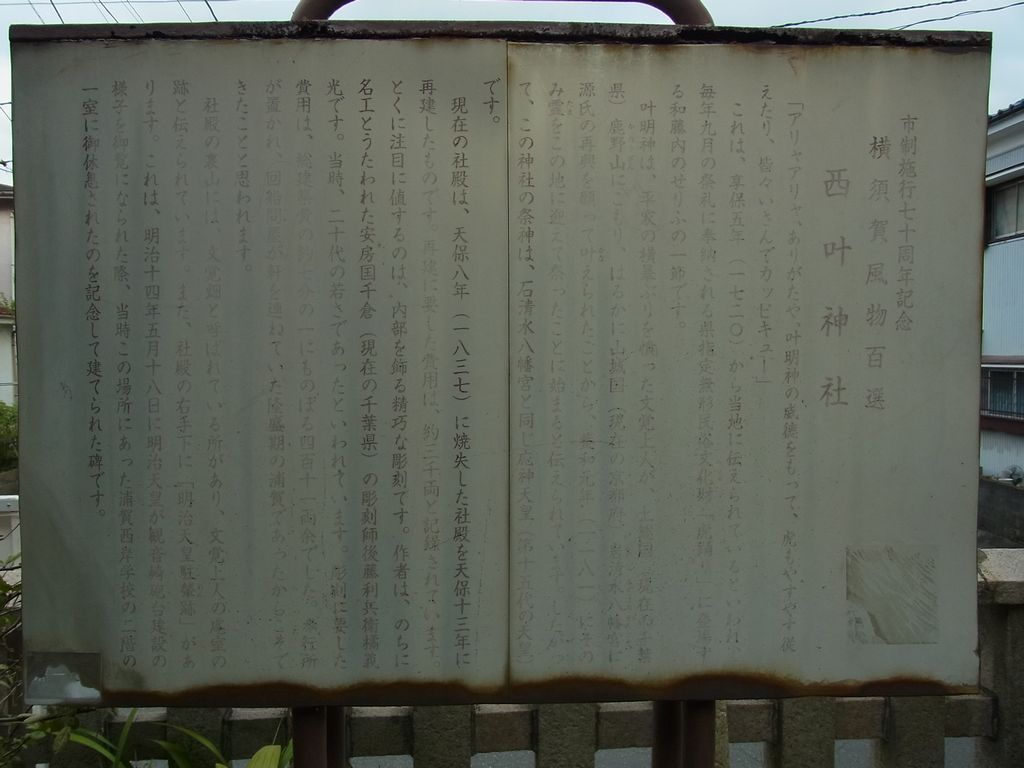 市制施行七十周年記念
横須賀風物百選
西叶神社
「アリャアリャ、ありがたや、叶明神の威徳をもって、虎もやすやす従
えたり、皆々いさんでカッピキュー」
これは、享保五年（一七二〇）から当地に伝えられているといわれ、
毎年九月の祭礼に奉納される県指定無形民俗文化財「虎踊り」に登場す
る和藤内のせりふの一節です。
叶明神は、平家の横暴ぶりを憤った文覚上人が、上総国（現在の千葉
県）鹿野山にこもり、はるかに山城国（現在の京都府）岩清水八幡宮に
源氏の再興を願って叶えられたことから、養和元年（一一八一）にその
み霊をこの地に迎えて祭ったことに始まると伝えられています。したがっ
て、この神社の祭神は、石清水八幡宮と同じ応神天皇（第十五代の天皇）
です。
現在の社殿は、天保八年（一八三七）に焼失した社殿を天保十三年に
再建したものです。再建に要した費用は、約三千両と記録されています。
とくに注目に値するのは、内部を飾る精巧な彫刻です。作者は、のちに
名工とうたわれた安房国千倉（現在の千葉県）の彫刻師後藤利兵衛橘義
光です。当時、二十代の若さであったといわれています。彫刻に要した
費用は、総建築費の約七分の一にものぼる四百十一両余でした。奉行所
が置かれ、回船問屋が軒を連ねていた隆盛期の浦賀であったからこそで
きたことと思われます。
社殿の裏山には、文覚畑と呼ばれている所があり、文覚上人の庵室の
跡と伝えられています。また、社殿の右手下に「明治天皇駐輦跡」があ
ります。これは、明治十四年五月十八日に明治天皇が観音崎砲台建設の
様子を御覧になられた際、当時この場所にあった浦賀西岸学校の二階の
一室に御休息されたのを記念して建てられた碑です。